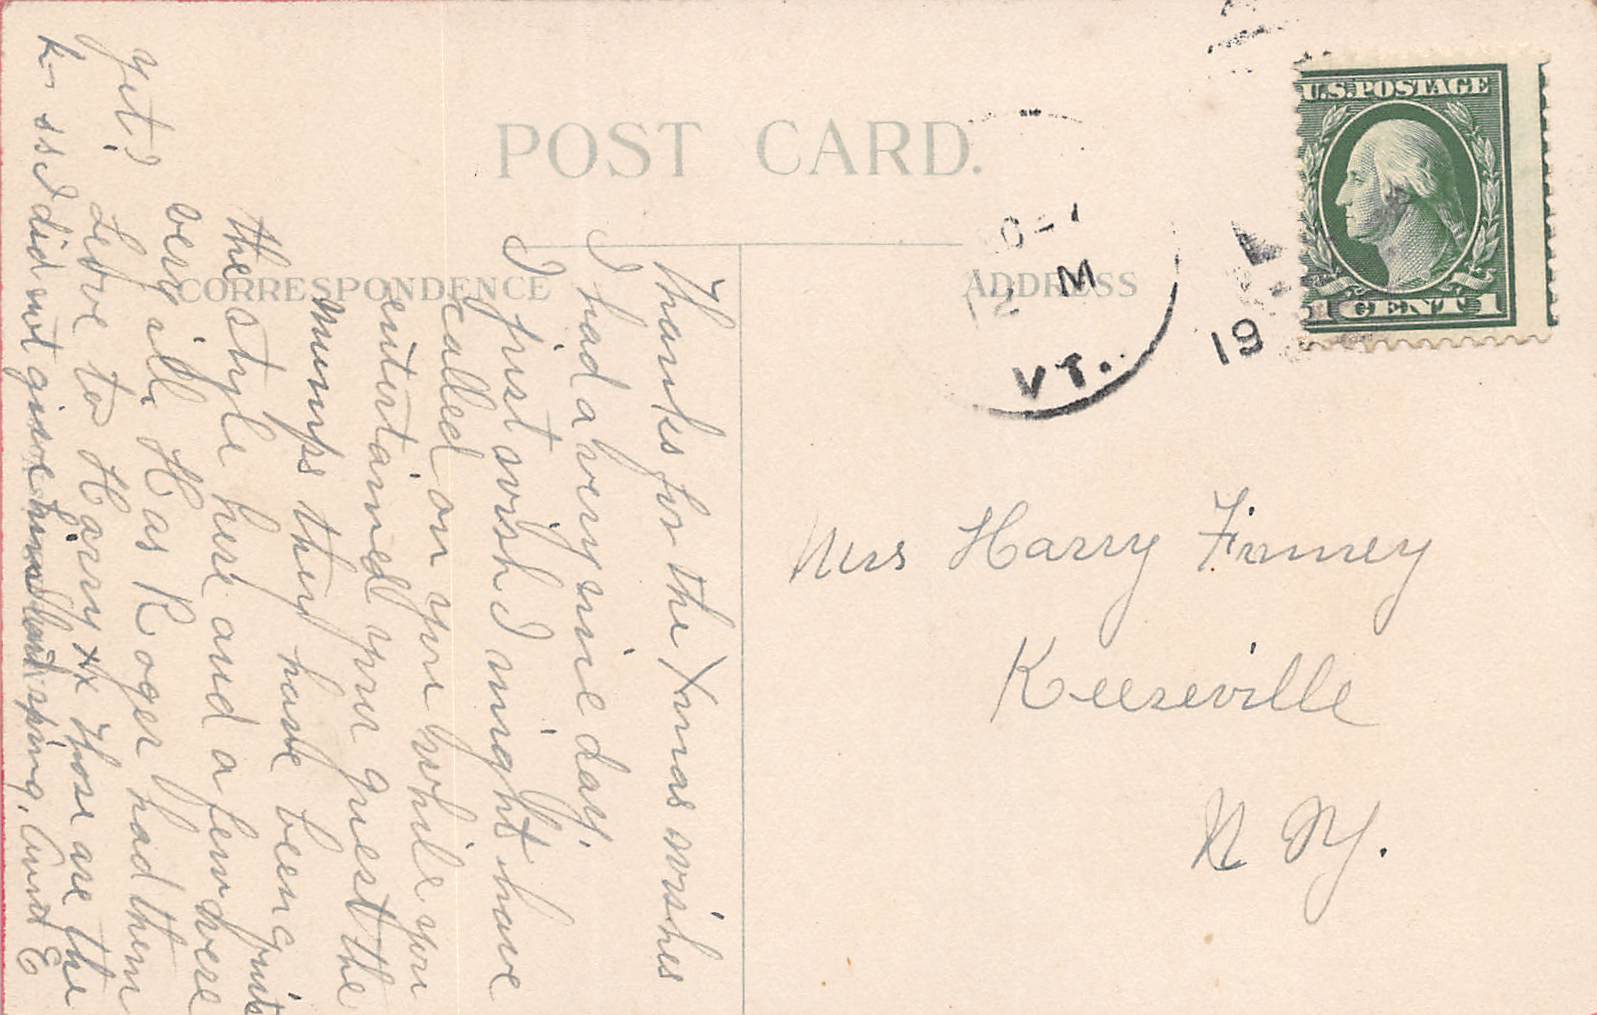 POST CARD.
CORRESPONDENCE
ADDRESS
U.S. POSTAGE
1 CENT 1
M
VT.
19
Thanks for the Xmas wishes
I had a very nice day.
I just wish I might have
called on you while you
entertained your guest the
mumps they have been quite
the style here and a few were
very ill. Has Roger had them
yet? Love to Harry xx Those are the
kisses I did not give him last spring. Aunt E
Mrs Harry Finney
Keeseville
N Y.